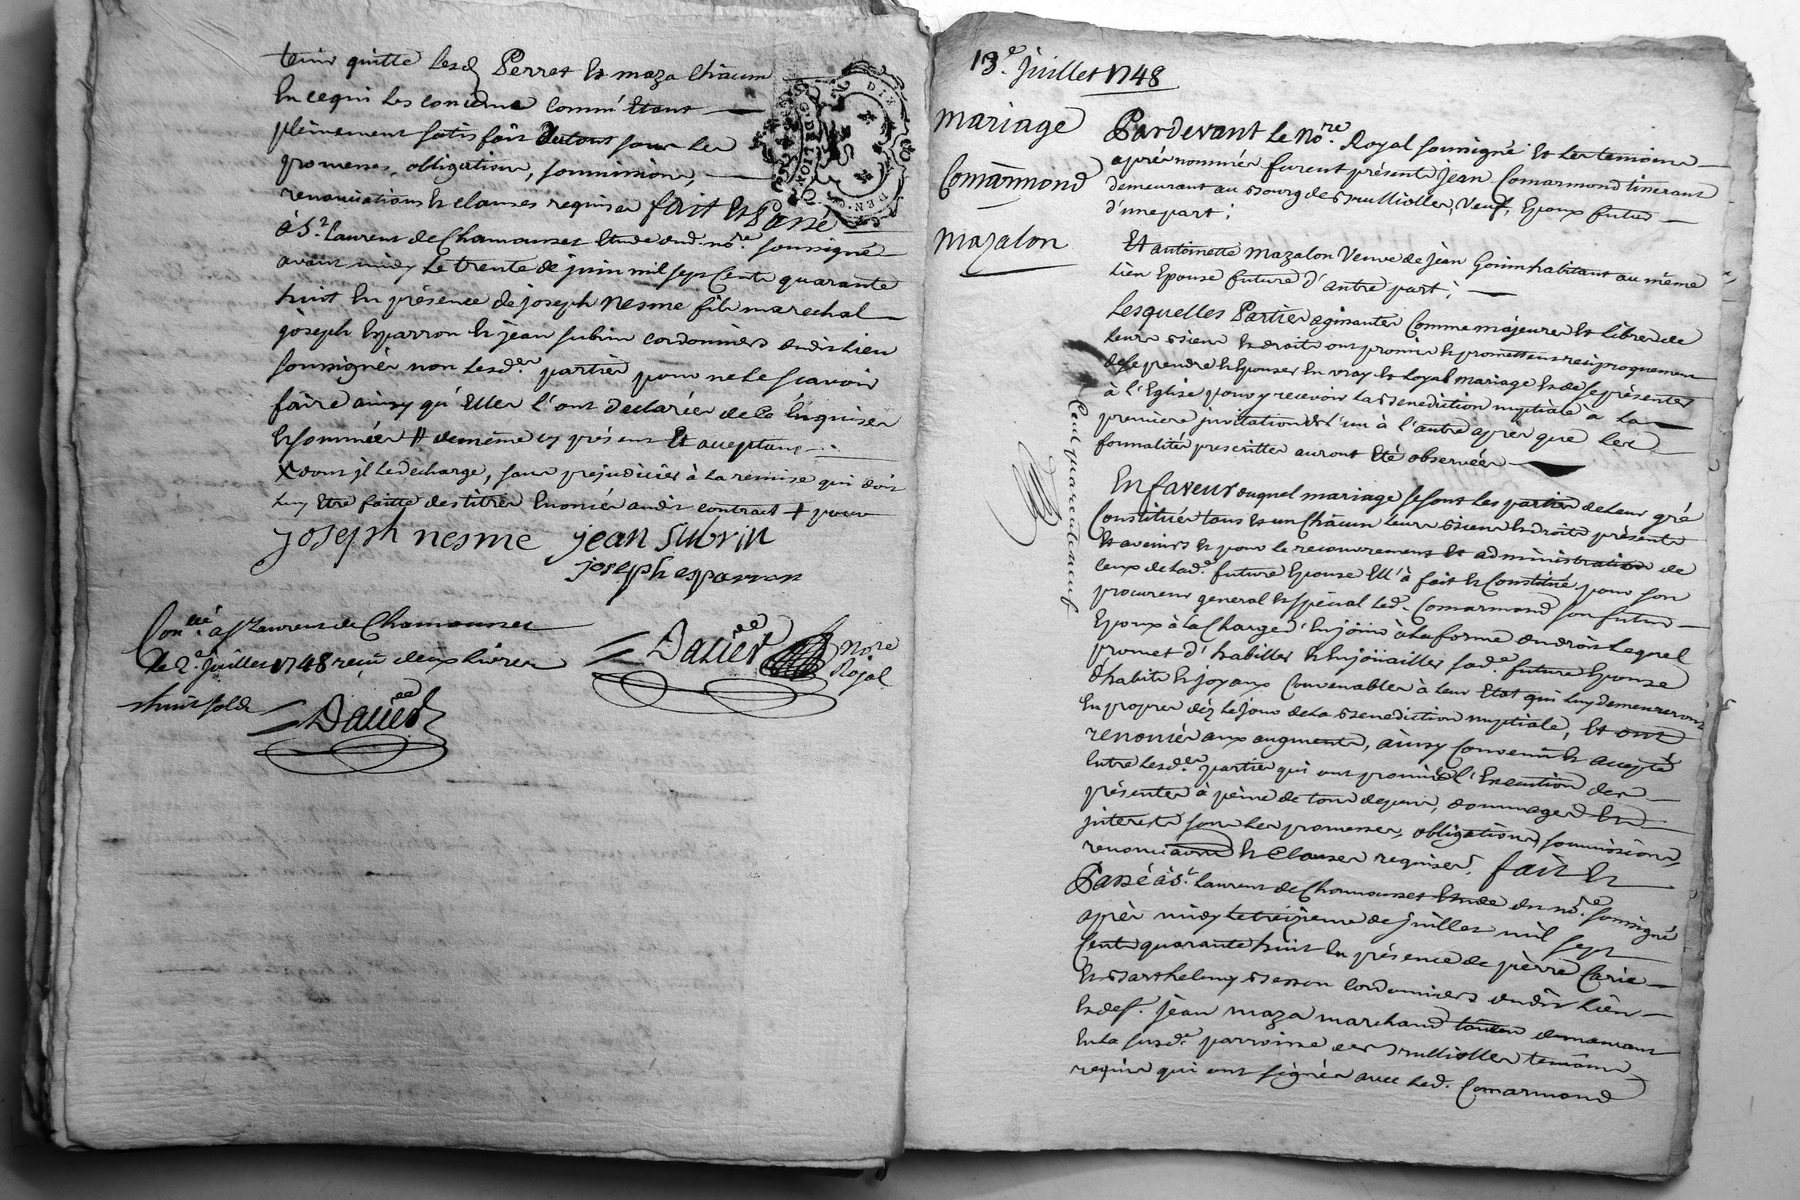 tenir quitte lesd. Perret et maza Chacun
En cequi les concerne comme Etant
pleinement satisfait Dutout sous les
promesses, obligations, soumissions,
renonciations et clauses requises fait Et Passé
à St. Laurent de Chamousset Etude dud. nore. soussigné
avant midy Le trente de juin mil sept Cent quarante
huit En présence de joseph Nesme fils marechal
joseph Esparron et jean subrin cordonniers dudit Lieu
soussignés non Lesd. parties pour ne Le scavoir
faire ainsy qu'Elles l'ont Declarées de ce Enquises
Et sommées # de même cy présent Et acceptant
X dont jl Le decharge, sans prejudicier à La remise qui doit
luy Etre faitte des titres Enoncés audit contrat + pour
joseph nesme jean subrin
joseph esparron
Conllé. a St Laurent de Chamousset
le 2e. juillet 1748 reçu deux livres
huit sols
Nore
Royal
13e. Juillet 1748
Mariage
Comarmond
Mazalon
Pardevant Le Nore. Royal soussigné Et Les temoins
après nommés furent présents jean Comarmond tisserant
demeurant au Bourg de Brulliolles, Veuf, Epoux futur
d'une part;
Et antoinette Mazalon Veuve de jean Gonin habitant au même
Lieu Epouse future d'autre part;
Lesquelles Parties agissantes Comme majeures Et Libres de
Leurs Biens Et droits ont promis Et promettent reciproquement
de se prendre Et Epouser En vray Et Loyal mariage Et de se présenter
à l'Eglise pour y recevoir La Benediction nuptiale à La
premiere invitation de l'un à l'autre après que Les
formalités prescrittes auront Eté observées
Cent quarante neuf
En faveur duquel mariage se sont Les parties de Leur gré
Constitués tous Et un Chacun Leurs Biens Et droits présents
Et avenirs Et pour Le recouvrement Et administration de
Ceux de Lad. future Epouse Ell'à fait Et Constitué pour son
procureur general Et spécial Led. Comarmond son futur
Epoux à La Charge d'En jouir à La forme du droit Lequel
promet d'habiller Et Enjoüailler sad. future Epouse
d'habits Et joyaux Convenables à Leur Etat qui Luy demeureront
En propre dès Le jour de La Benediction nuptiale, Et ont
renoncé aux augments, ainsy Convenu Et accepté
Entre Lesd. parties qui ont promis l'Execution des
présentes à peine de tous depens, dommages Et
interets sous Les promesses, obligations, soumissions,
renonciations Et Clauses requises. fait Et
Passé à St. Laurent de Chamousset Etude du nore. soussigné
après midy Le treizieme de juillet mil sept
Cent quarante huit En présence de pierre Carie
Et Barthelemy Besson Cordonniers dudit Lieu
Et de sr. jean maza marchand demeurant
En La susde. parroisse de Brulliolles temoins
requis qui ont signés avec Led. Comarmond